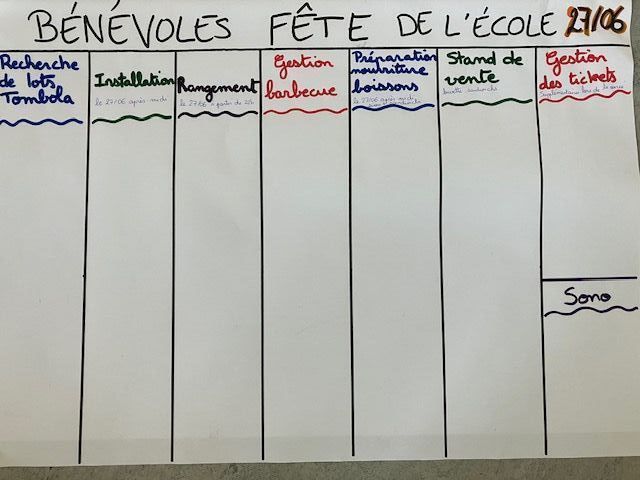 BÉNÉVOLES FÊTE DE L'ÉCOLE 27/06
Recherche
de lots
Tombola
Installation
le 27/06 après midi
Rangement
le 27/06 à partir de
Gestion
barbecue
Préparation
nourriture
boissons
le 27/06 après midi
Stand de
vente
buvette sandwichs
Gestion
des tickets
supplémentaires lors de la soirée
Sono